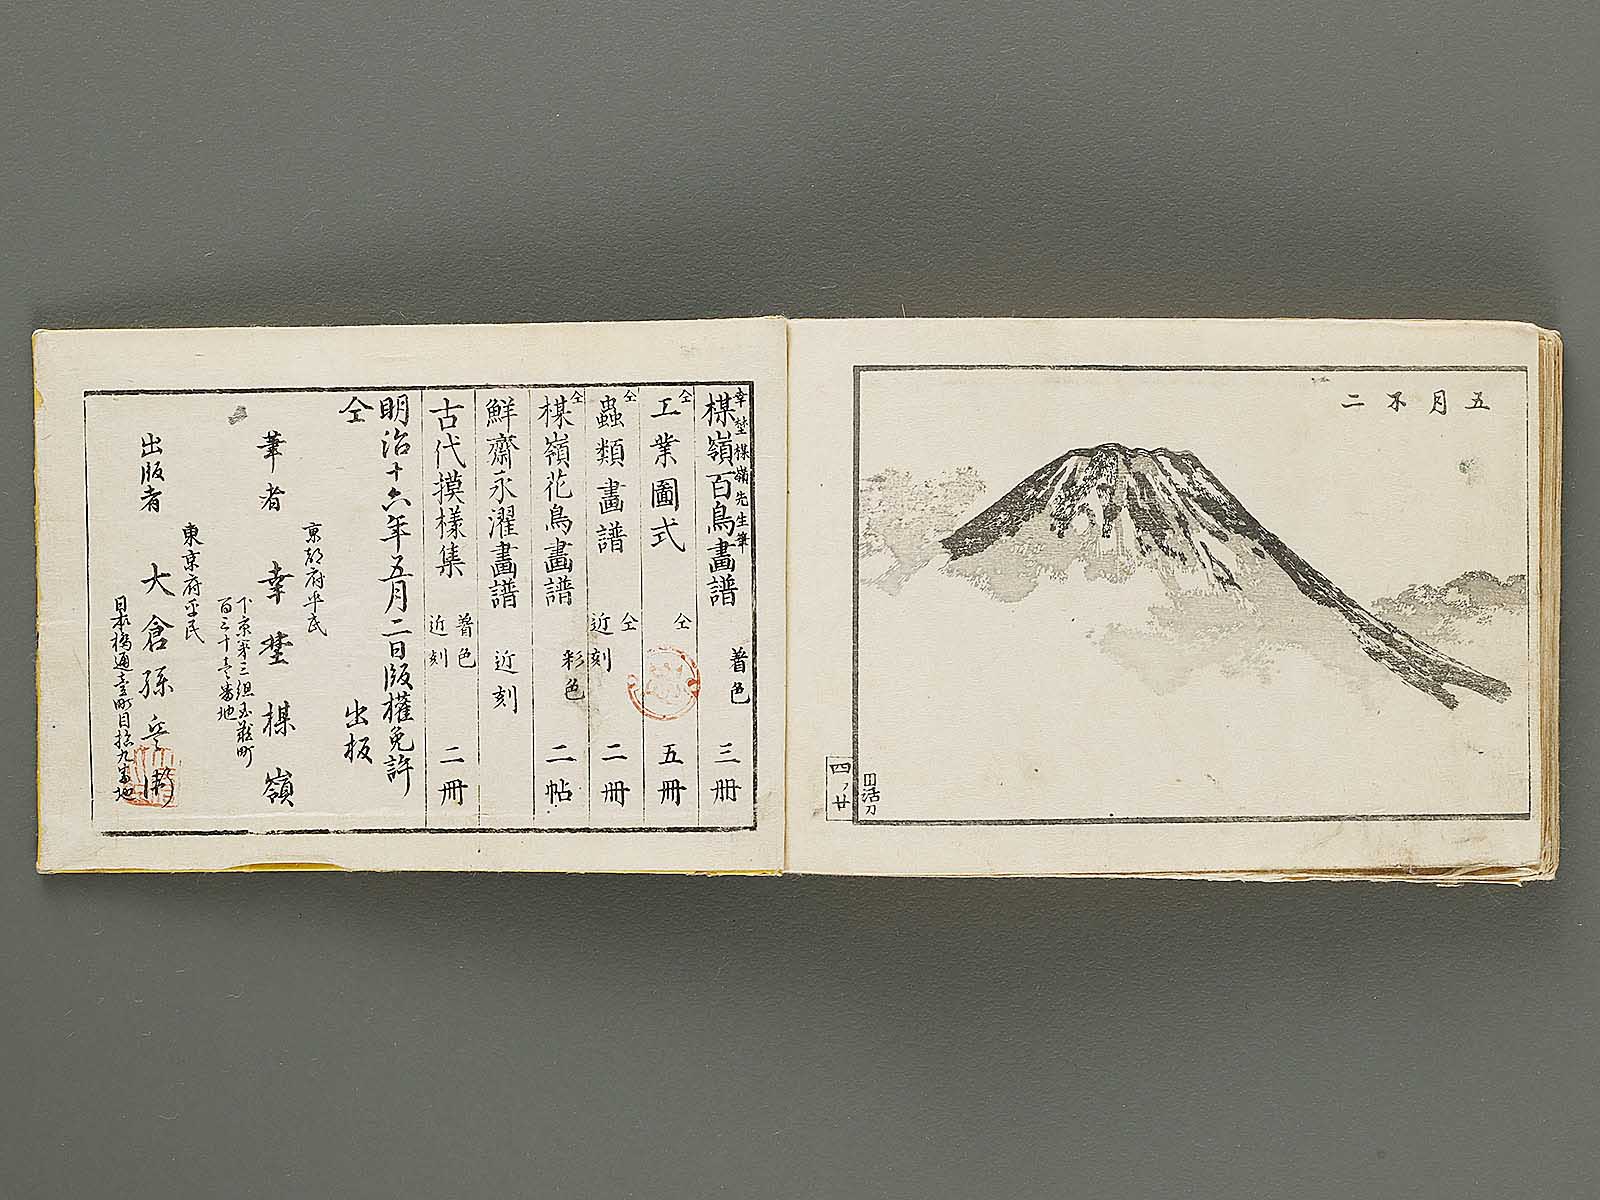 五月不二
四ノ廿
幸埜楳嶺先生筆
楳嶺百鳥畫譜 着色 三册
仝
工業圖式 仝 五册
仝
蟲類畫譜 仝 近刻 二册
仝
楳嶺花鳥畫譜 彩色 二帖
鮮齋永濯畫譜 近刻
古代摸樣集 着色 近刻 二册
明治十六年五月二日版權免許
仝 出板
京都府平民
筆者 幸埜楳嶺
下京第三組玉蔵町
百三十壱番地
東京府平民
出版者 大倉孫兵衛
日本橋通壹町目拾九番地